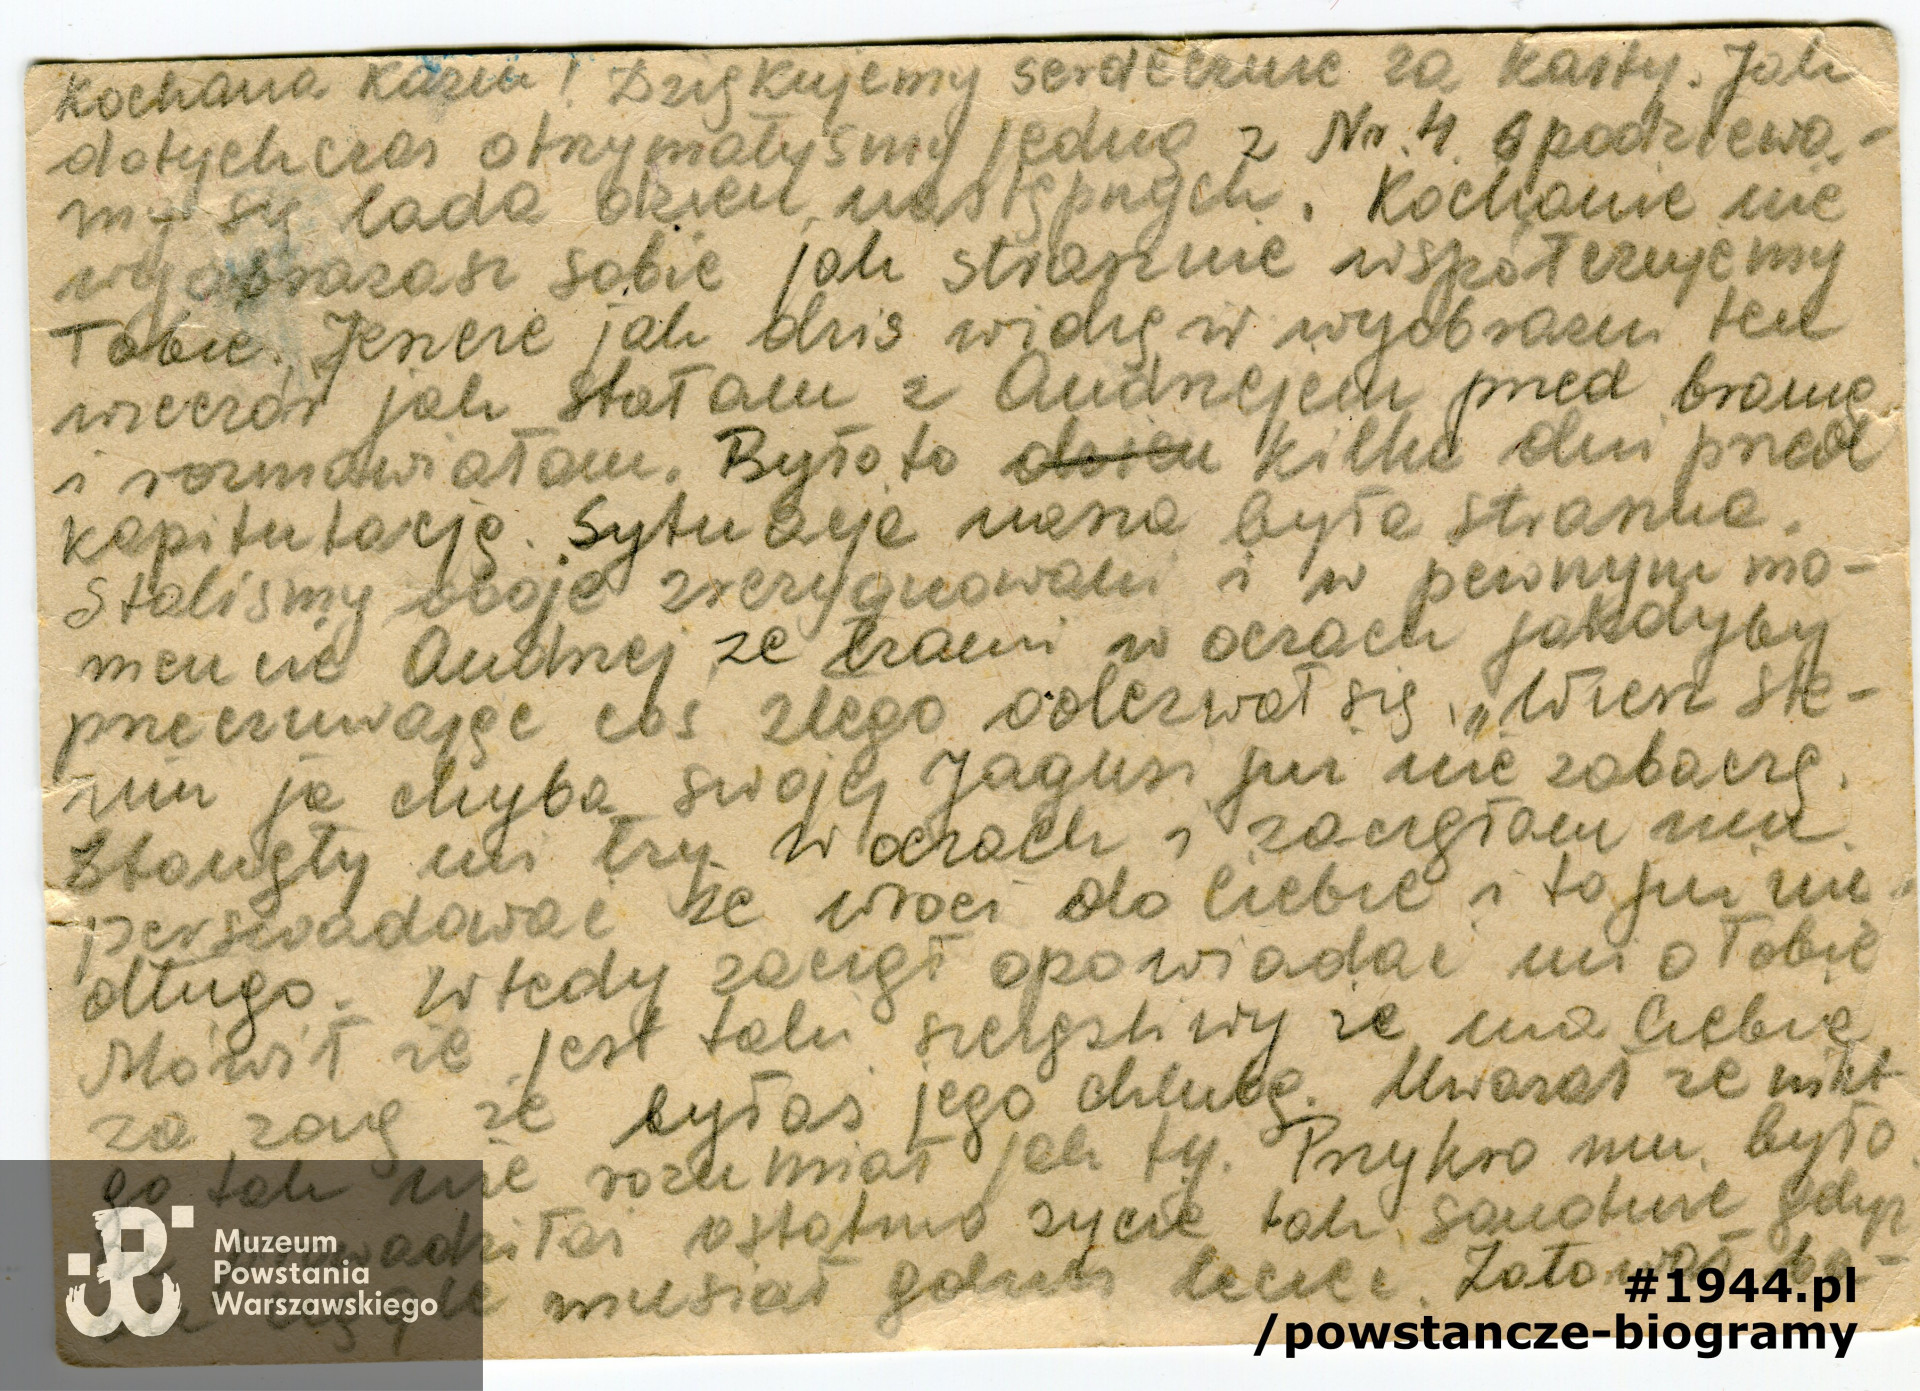 Kochana Kaziu! Dziękujemy serdecznie za karty. Jak
dotychczas otrzymałyśmy jedną z Nr. 4. Spodziewa-
my się lada dzień następnych. Kochanie nie
wyobrażasz sobie jak strasznie współczujemy
Tobie. Jeszcze jak dziś widzę w wyobraźni ten
wieczór jak stałam z Andrzejem przed bramą
i rozmawiałam. Było to dzien kilka dni przed
kapitulacją. Sytuacja nasza była straszna.
Staliśmy oboje zrezygnowani i w pewnym mo-
mencie Andrzej ze łzami w oczach jakdyby
przeczuwając coś złego odezwał się „Wiesz
ja chyba swojej Jagusi już nie zobaczę.
Stanęły mi łzy w oczach i zaczęłam mu
perswadować że wróci do Ciebie i to już nie
długo. Wtedy zaczął opowiadać mi o Tobie
Mówił że jest taki szczęśliwy że ma Ciebie
za żonę że byłaś jego chlubą. Uważał że nikt
go tak nie rozumiał jak ty. Przykro mu było
ostatnio życie tak samotne gdyż
musiał gdzieś lecieć. Żałował ba-
Muzeum
Powstania
Warszawskiego
#1944.pl
/powstancze-biogramy